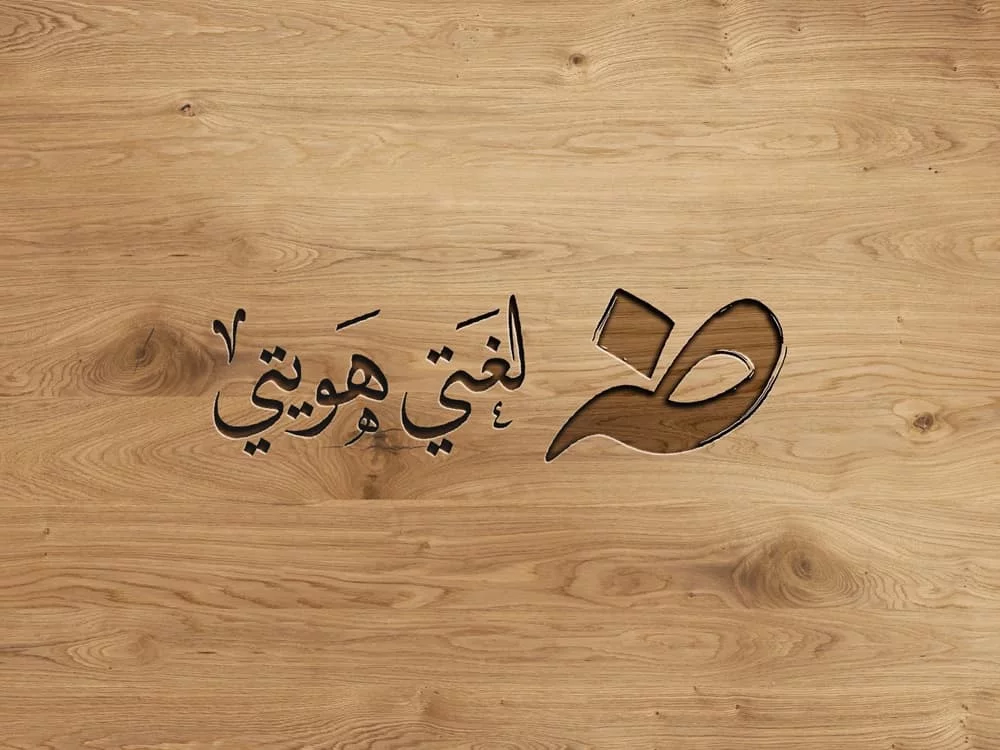 ض لغتي هويتي